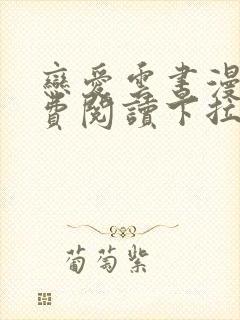 戀愛雲書漫
費閱讀下拉
葡萄紫